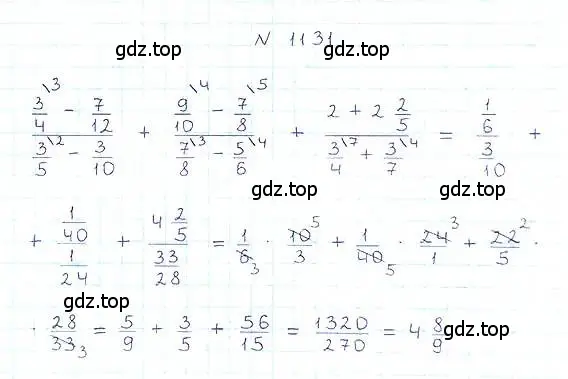 N 1131
gdz.top
gdz.top
\frac{\frac{3}{4}^{\backslash 3} - \frac{7}{12}}{\frac{3}{5}^{\backslash 2} - \frac{3}{10}} + \frac{\frac{9}{10}^{\backslash 4} - \frac{7}{8}^{\backslash 5}}{\frac{7}{8}^{\backslash 3} - \frac{5}{6}^{\backslash 4}} + \frac{2 + 2\frac{2}{5}}{\frac{3}{4}^{\backslash 7} + \frac{3}{7}^{\backslash 4}} = \frac{\frac{1}{6}}{\frac{3}{10}} +
gdz.top
gdz.top
+ \frac{\frac{1}{40}}{\frac{1}{24}} + \frac{4\frac{2}{5}}{\frac{33}{28}} = \frac{1}{6_3} · \frac{10^5}{3} + \frac{1}{40_5} · \frac{24^3}{1} + \frac{22^2}{5} ·
gdz.top
gdz.top
· \frac{28}{33_3} = \frac{5}{9} + \frac{3}{5} + \frac{56}{15} = \frac{1320}{270} = 4\frac{8}{9}
gdz.top